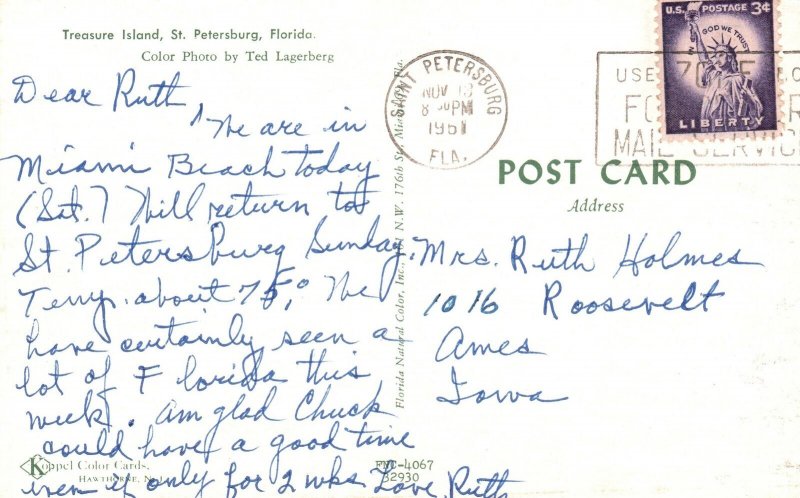 Treasure Island, St. Petersburg, Florida.
Color Photo by Ted Lagerberg
Dear Ruth
We are in
Miami Beach today
(Sat.) Will return to
St. Petersburg Sunday.
Temp. about 75°. We
have certainly seen a
lot of Florida this
week. Am glad Chuck
could have a good time
even if only for 2 wks Love, Ruth
Koppel Color Cards.
Hawthorne, N.J.
Florida Natural Color, Inc., N.W. 176th St., Miami, Fla.
FNC-4067
32930
SAINT PETERSBURG
NOV
PM
1961
FLA.
U.S. POSTAGE 3¢
IN GOD WE TRUST
LIBERTY
USE ZONE
FOR
MAIL SERVICE
POST CARD
Address
Mrs. Ruth Holmes
1016 Roosevelt
Ames
Iowa